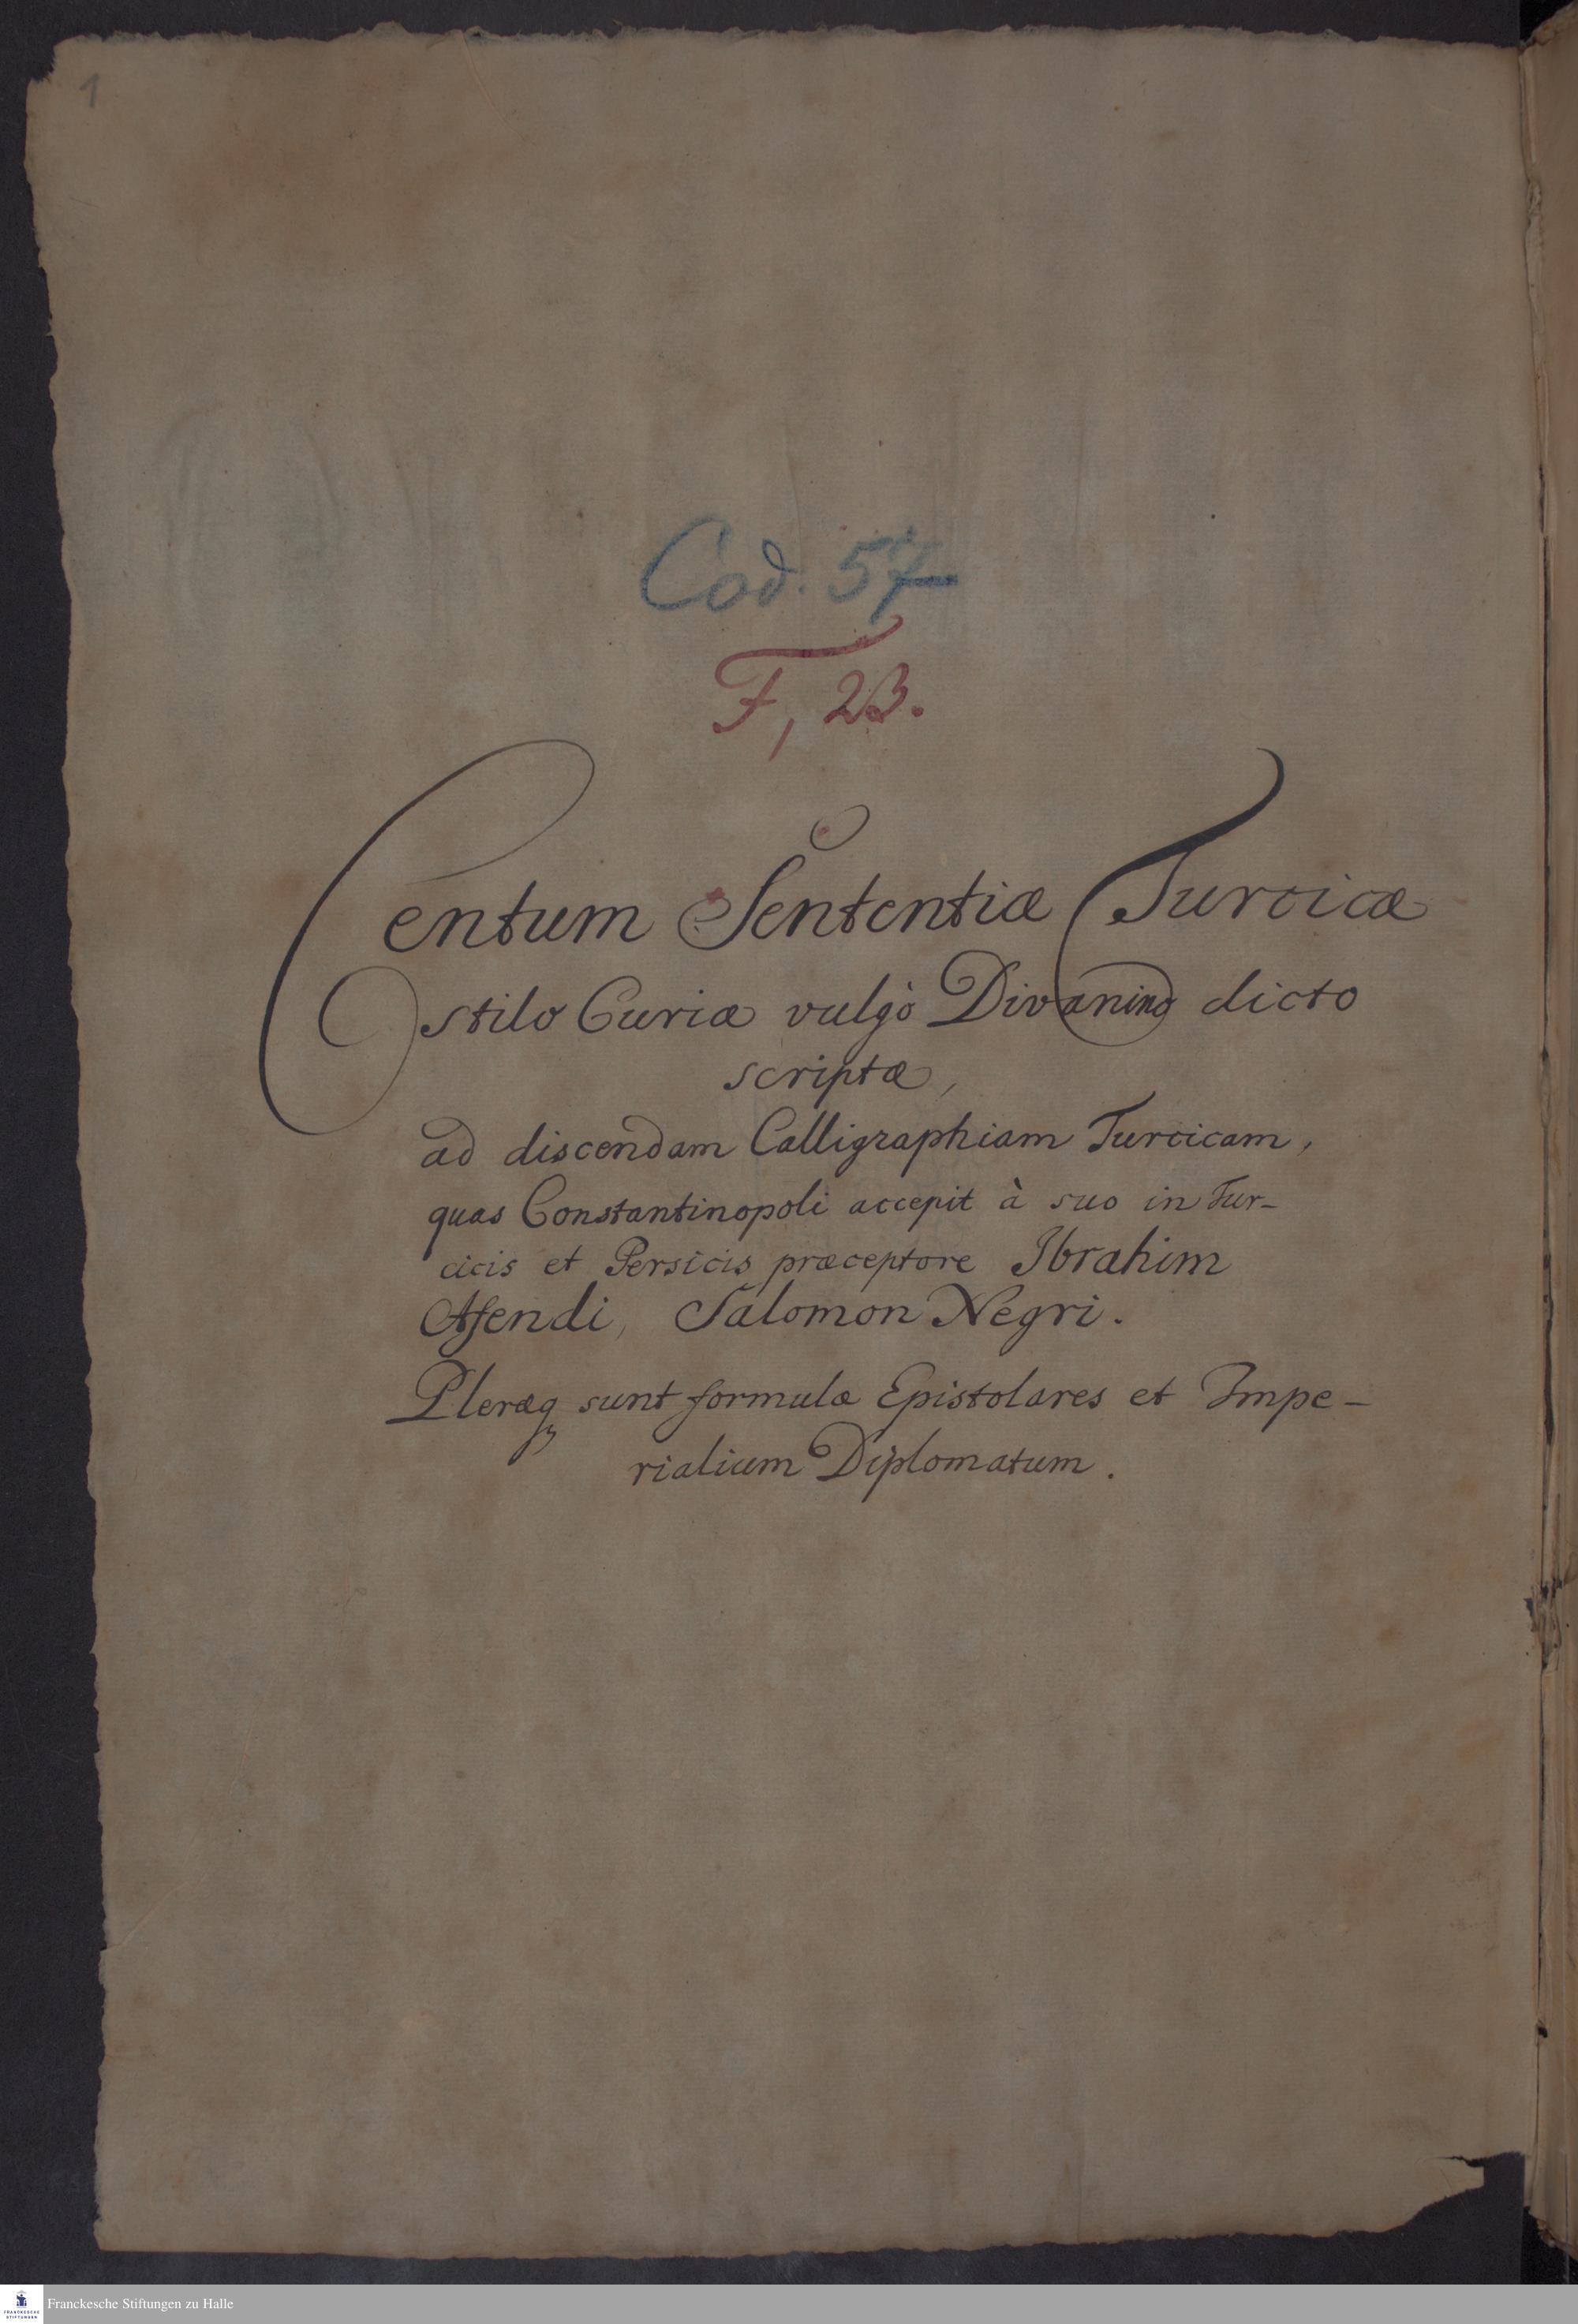 1
Cod. 57
F, 23.
Centum Sententiæ Turcicæ
stilo Curiæ vulgò Divanino dicto
scriptæ,
ad discendam Calligraphiam Turcicam,
quas Constantinopoli accepit à suo in Tur-
cicis et Persicis præceptore Ibrahim
Afendi, Salomon Negri.
Pleræq; sunt formulæ Epistolares et Impe-
rialium Diplomatum.
FRANCKESCHE
STIFTUNGEN
Franckesche Stiftungen zu Halle